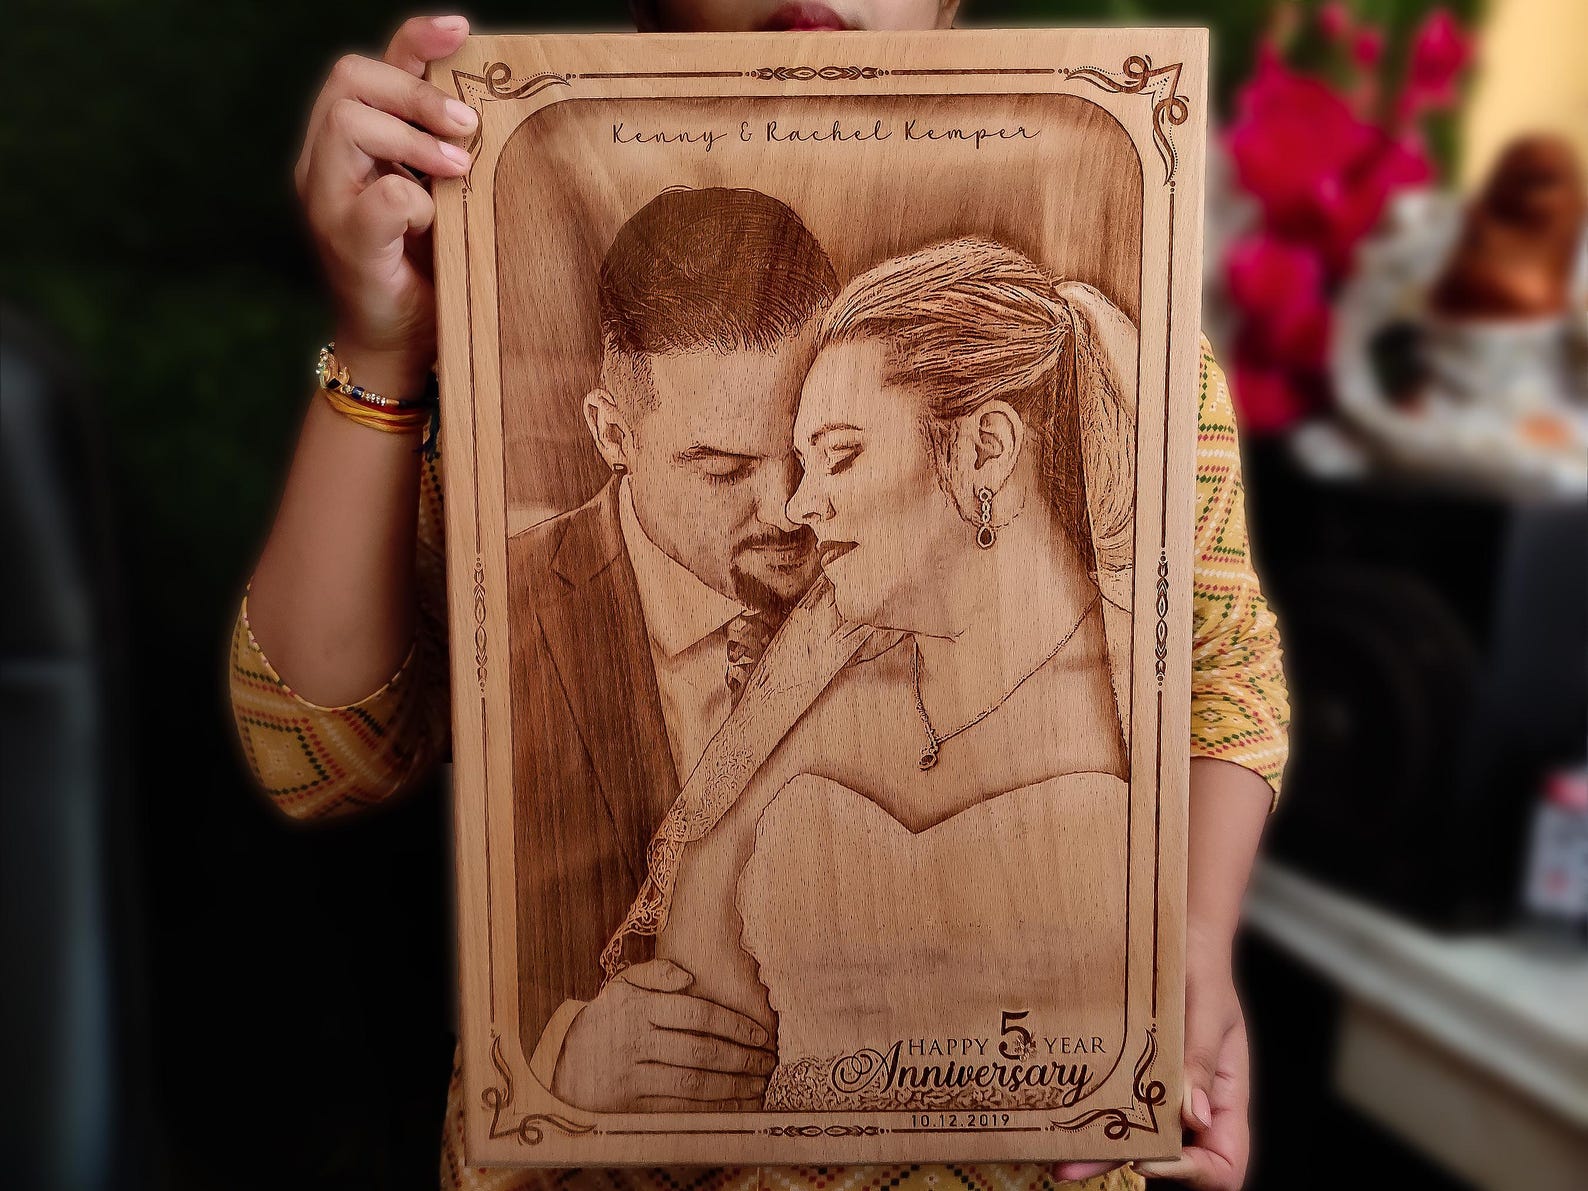 Kenny & Rachel Kemper
HAPPY 5 YEAR
Anniversary
10.12.2019